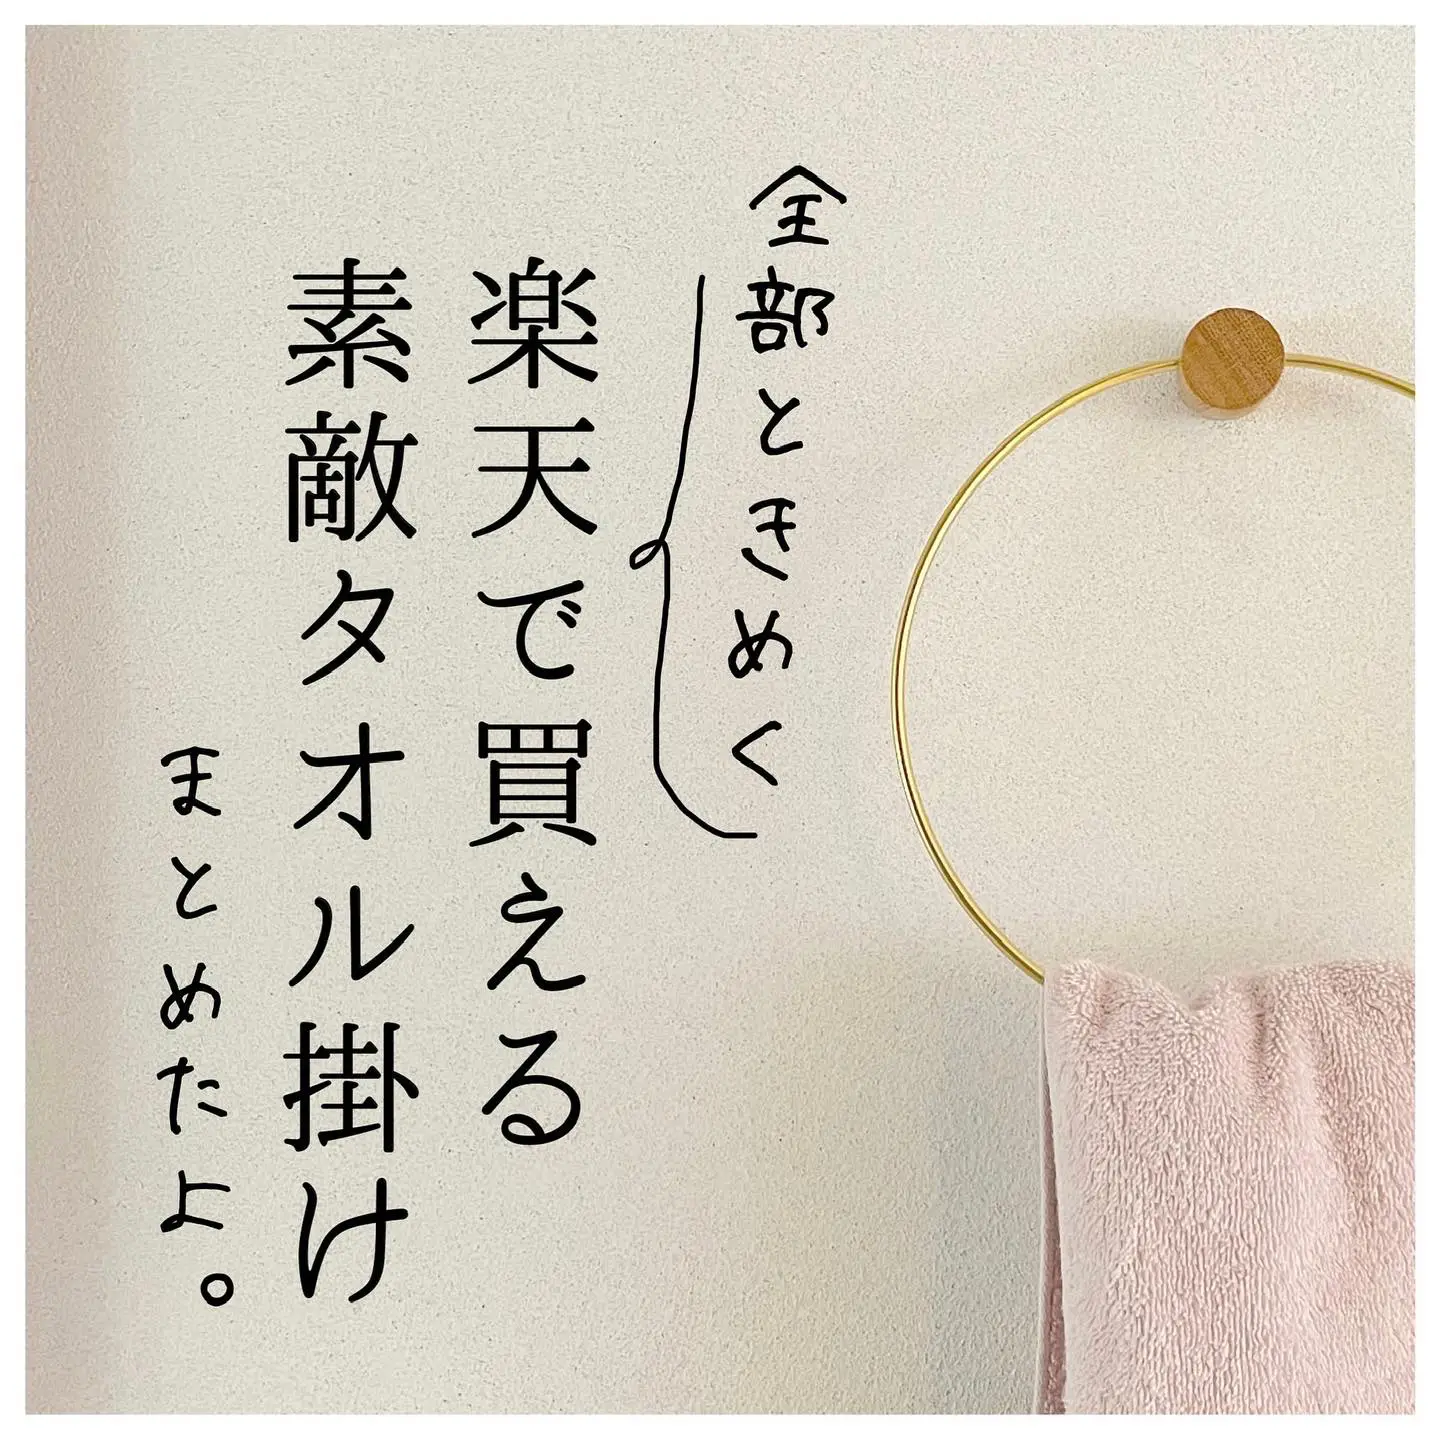 全部ときめく
楽天で買える
素敵タオル掛け
まとめたよ。